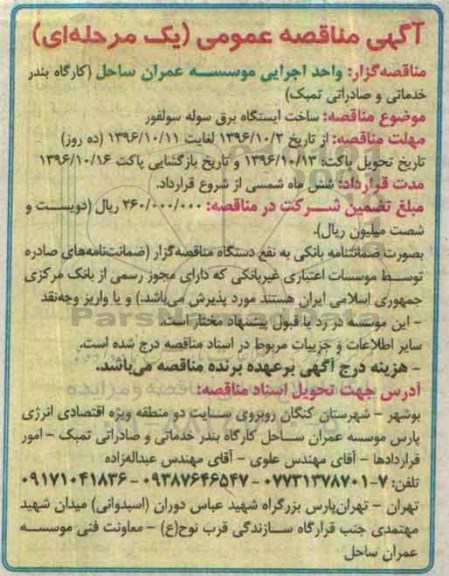 آگهی مناقصه عمومی (یک مرحله‌ای)
مناقصه‌گزار: واحد اجرایی موسسه عمران ساحل (کارگاه بندر
خدماتی و صادراتی تمبک)
موضوع مناقصه: ساخت ایستگاه برق سوله سولفور
مهلت مناقصه: از تاریخ ۱۳۹۶/۱۰/۲ لغایت ۱۳۹۶/۱۰/۱۱ (ده روز)
تاریخ تحویل پاکت: ۱۳۹۶/۱۰/۱۳ و تاریخ بازگشایی پاکت ۱۳۹۶/۱۰/۱۶
مدت قرارداد: شش ماه شمسی از شروع قرارداد.
مبلغ تضمین شرکت در مناقصه: ۲۶۰/۰۰۰/۰۰۰ ریال (دویست و
شصت میلیون ریال).
بصورت ضمانتنامه بانکی به نفع دستگاه مناقصه‌گزار (ضمانتنامه‌های صادره
توسط موسسات اعتباری غیربانکی که دارای مجوز رسمی از بانک مرکزی
جمهوری اسلامی ایران هستند مورد پذیرش می‌باشد.) و یا واریز وجه‌نقد
- این موسسه در رد یا قبول پیشنهاد مختار است.
ParsNamadData
سایر اطلاعات و جزییات مربوط در اسناد مناقصه درج شده است.
- هزینه درج آگهی برعهده برنده مناقصه می‌باشد.
آدرس جهت تحویل اسناد مناقصه:
بوشهر - شهرستان کنگان روبروی سایت دو منطقه ویژه اقتصادی انرژی
پارس موسسه عمران ساحل کارگاه بندر خدماتی و صادراتی تمبک - امور
قراردادها - آقای مهندس علوی - آقای مهندس عبداله‌زاده
تلفن: ۷-۰۷۷۳۱۳۷۸۷۰۱ - ۰۹۳۸۷۶۴۶۵۴۷ - ۰۹۱۷۱۰۴۱۸۳۶
تهران - تهران‌پارس بزرگراه شهید عباس دوران (اسیدوانی) میدان شهید
مهتمدی جنب قرارگاه سازندگی قرب نوح(ع) - معاونت فنی موسسه
عمران ساحل